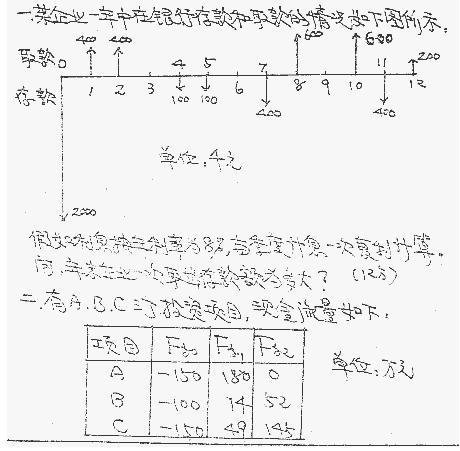 一.某企业一年中在银行存款和取款的情况如下图所示,
400 400 600 600 200
取款 0 4 5 7 11
存款 1 2 3 100 100 6 400 8 9 10 400 12
单位:千元
2000
假如利息按年利率为8%,每季度计息一次复利计算.
问,年末企业一次取出存款额为多大? (12分)
二.有A.B.C三个投资项目,现金流量如下.
项目 F₀ F₁ F₂
单位:万元
A -150 180 0
B -100 14 52
C -150 49 145